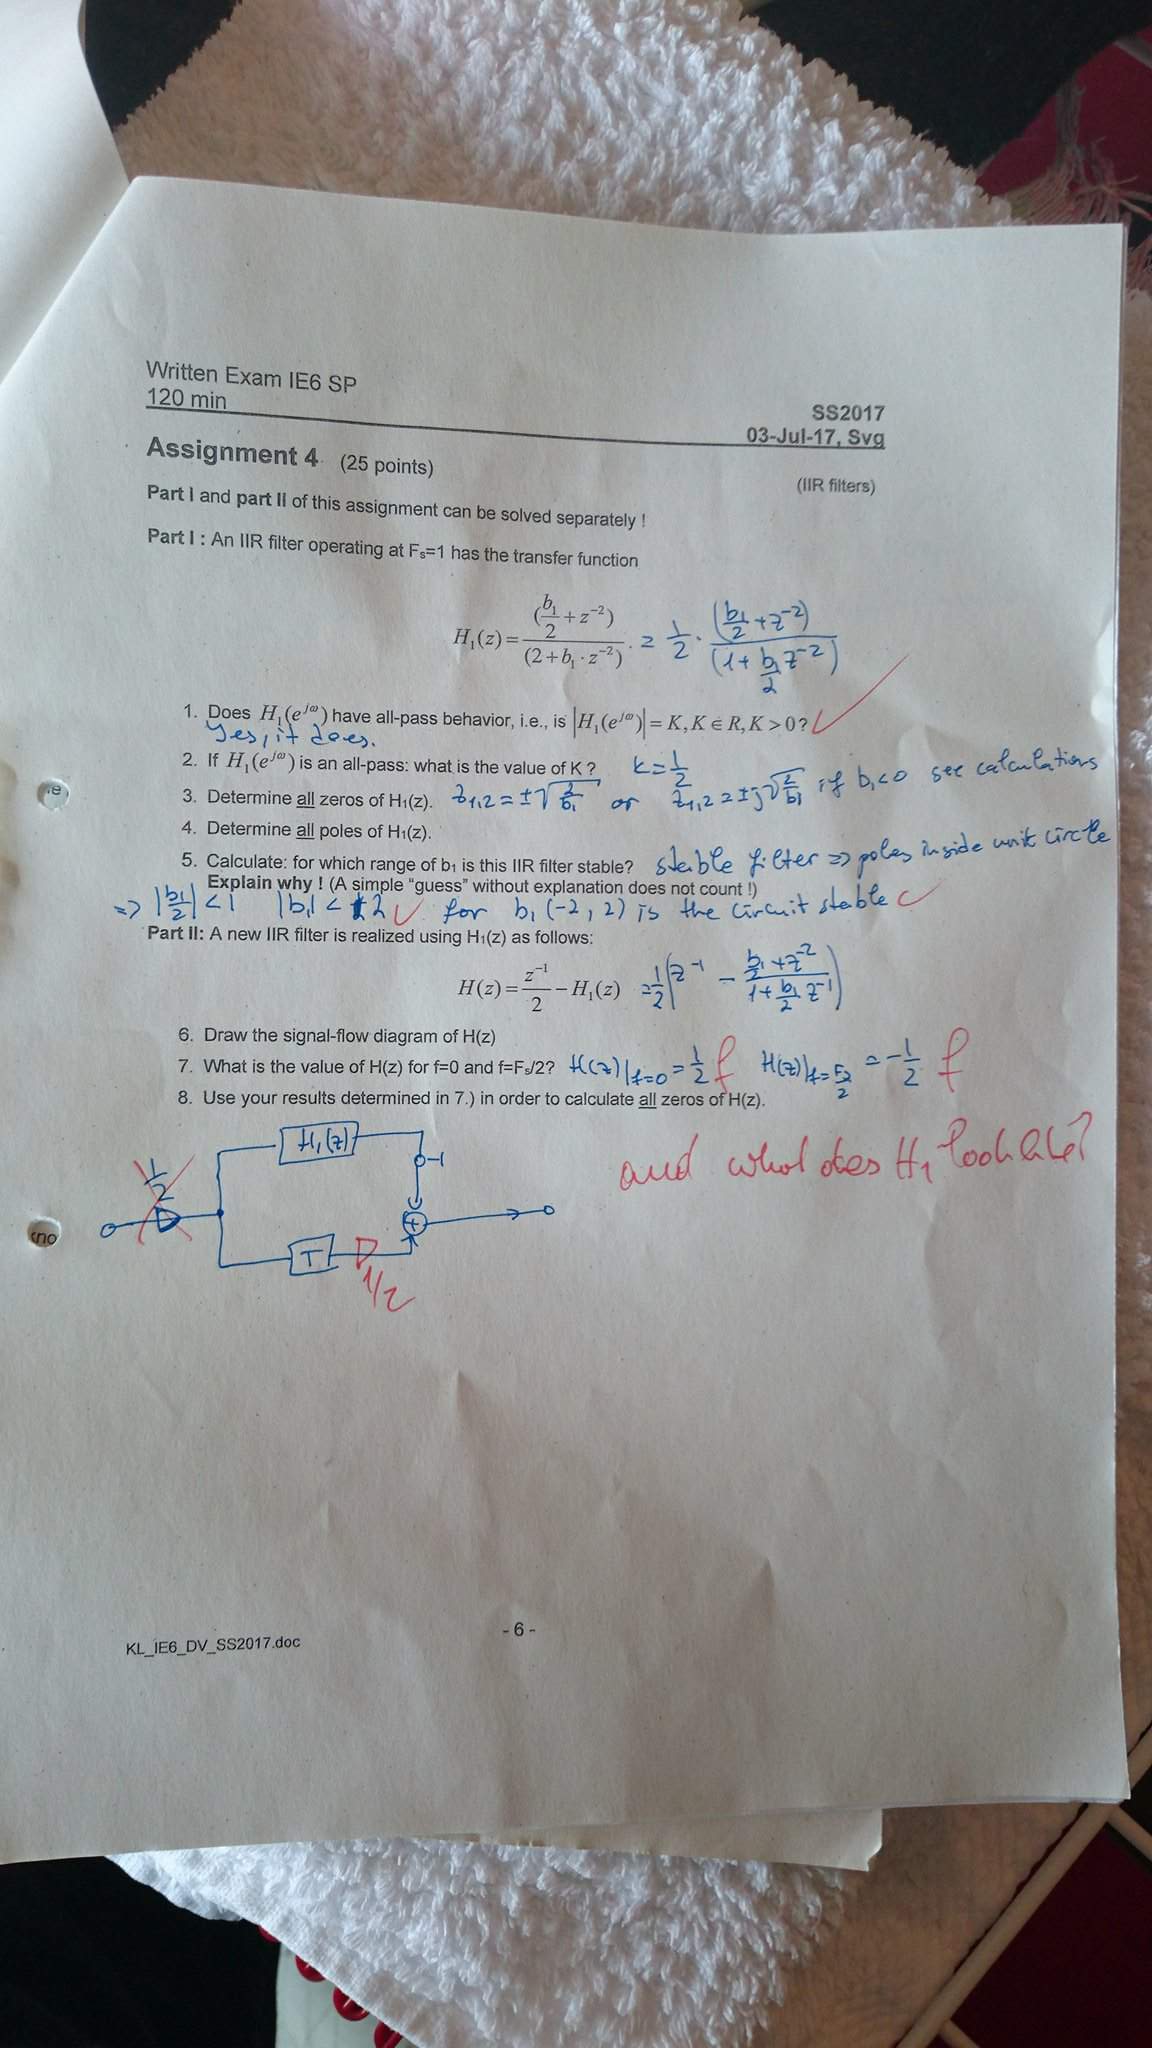 Written Exam IE6 SP
120 min
SS2017
03-Jul-17, Svg
Assignment 4 (25 points)
(IIR filters)
Part I and part II of this assignment can be solved separately !
Part I : An IIR filter operating at Fₛ=1 has the transfer function
H₁(z) = (b₁/2 + z⁻²) / (2 + b₁ · z⁻²) . = 1/2 · (b₁/2 + z⁻²) / (1 + b₁/2 z⁻²)
1. Does H₁(e^{jω}) have all-pass behavior, i.e., is |H₁(e^{jω})| = K, K ∈ R, K > 0?
Yes, it does.
2. If H₁(e^{jω}) is an all-pass: what is the value of K ? K = 1/2
3. Determine all zeros of H₁(z). z₁,₂ = ±√(2/b₁) or z₁,₂ = ±j√(2/b₁) if b₁<0 see calculations
4. Determine all poles of H₁(z).
5. Calculate: for which range of b₁ is this IIR filter stable? stable filter => poles inside unit circle
Explain why ! (A simple "guess" without explanation does not count !)
=> |b₁/2| < 1 |b₁| < 2 for b₁ (-2, 2) is the circuit stable
Part II: A new IIR filter is realized using H₁(z) as follows:
H(z) = z⁻¹/2 − H₁(z) = 1/2 (z⁻¹ − (b₁/2 + z⁻²) / (1 + b₁/2 z⁻¹))
6. Draw the signal-flow diagram of H(z)
7. What is the value of H(z) for f=0 and f=Fₛ/2? H(z)|f=0 = 1/2 f H(z)|f=Fs/2 = −1/2 f
8. Use your results determined in 7.) in order to calculate all zeros of H(z).
and what does H₁ look like?
H₁(z)
-1
1/2
+
T
1/2
KL_IE6_DV_SS2017.doc
- 6 -